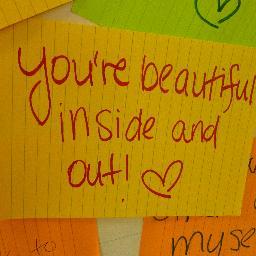 you're beautiful
inside and
out! ♡
to
myse